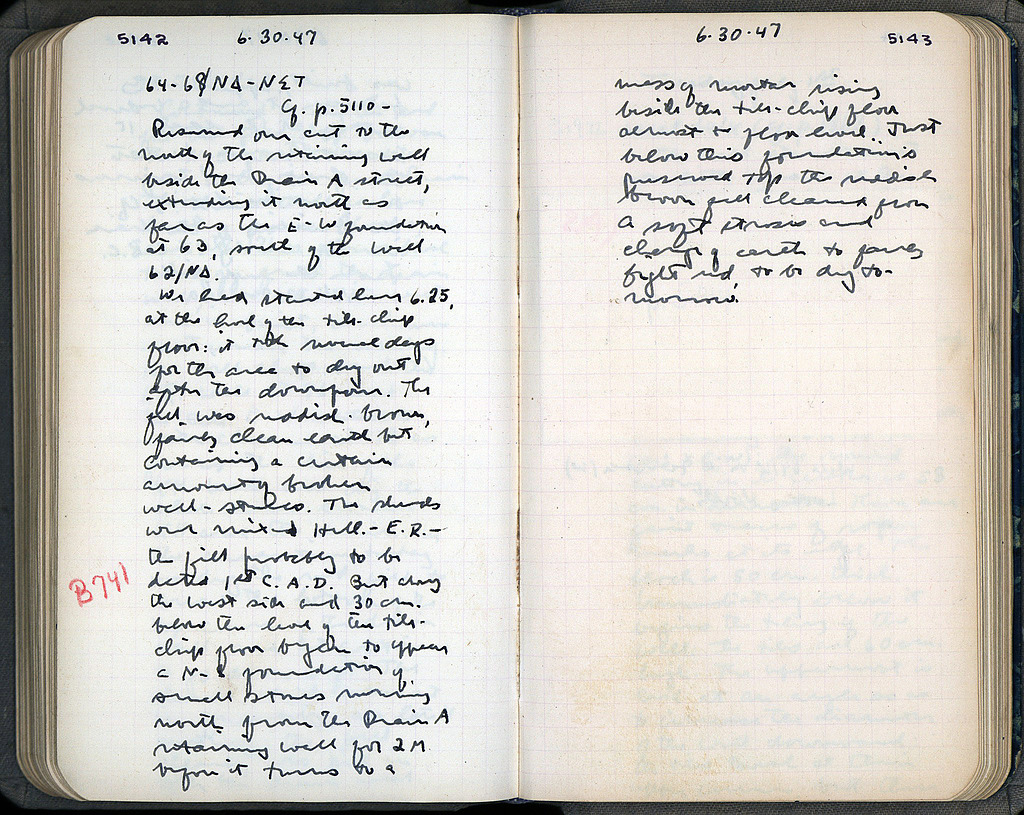 5142 6·30·47
64-68/NA-NET
Cf. p. 5110-
Resumed our cut to the
north of the retaining wall
beside the Drain A street,
extending it north as
far as the E-W foundation
at 63, south of the well
62/NA.
We had started here 6.25,
at the level of the tile-chip
floor: it took several days
for the area to dry out
after the downpour. The
fill was reddish brown,
fairly clean earth but
containing a certain
amount of broken
well-tiles. The sherds
were mixed Hell.-E.R.-
the fill probably to be
dated 1st C. A.D. But along
B741
the west side and 30 cm.
below the level of the tile-
chip floor began to appear
a N-S foundation of
small stones running
north from the Drain A
retaining wall for 2 M.
before it turns to a
6·30·47 5143
mess of mortar rising
beside the tile-chip floor
almost to floor level. Just
below this foundation's
preserved top the reddish
brown fill cleaned from
a soft strosis and
change of earth to fairly
bright red, to be dug to-
morrow.